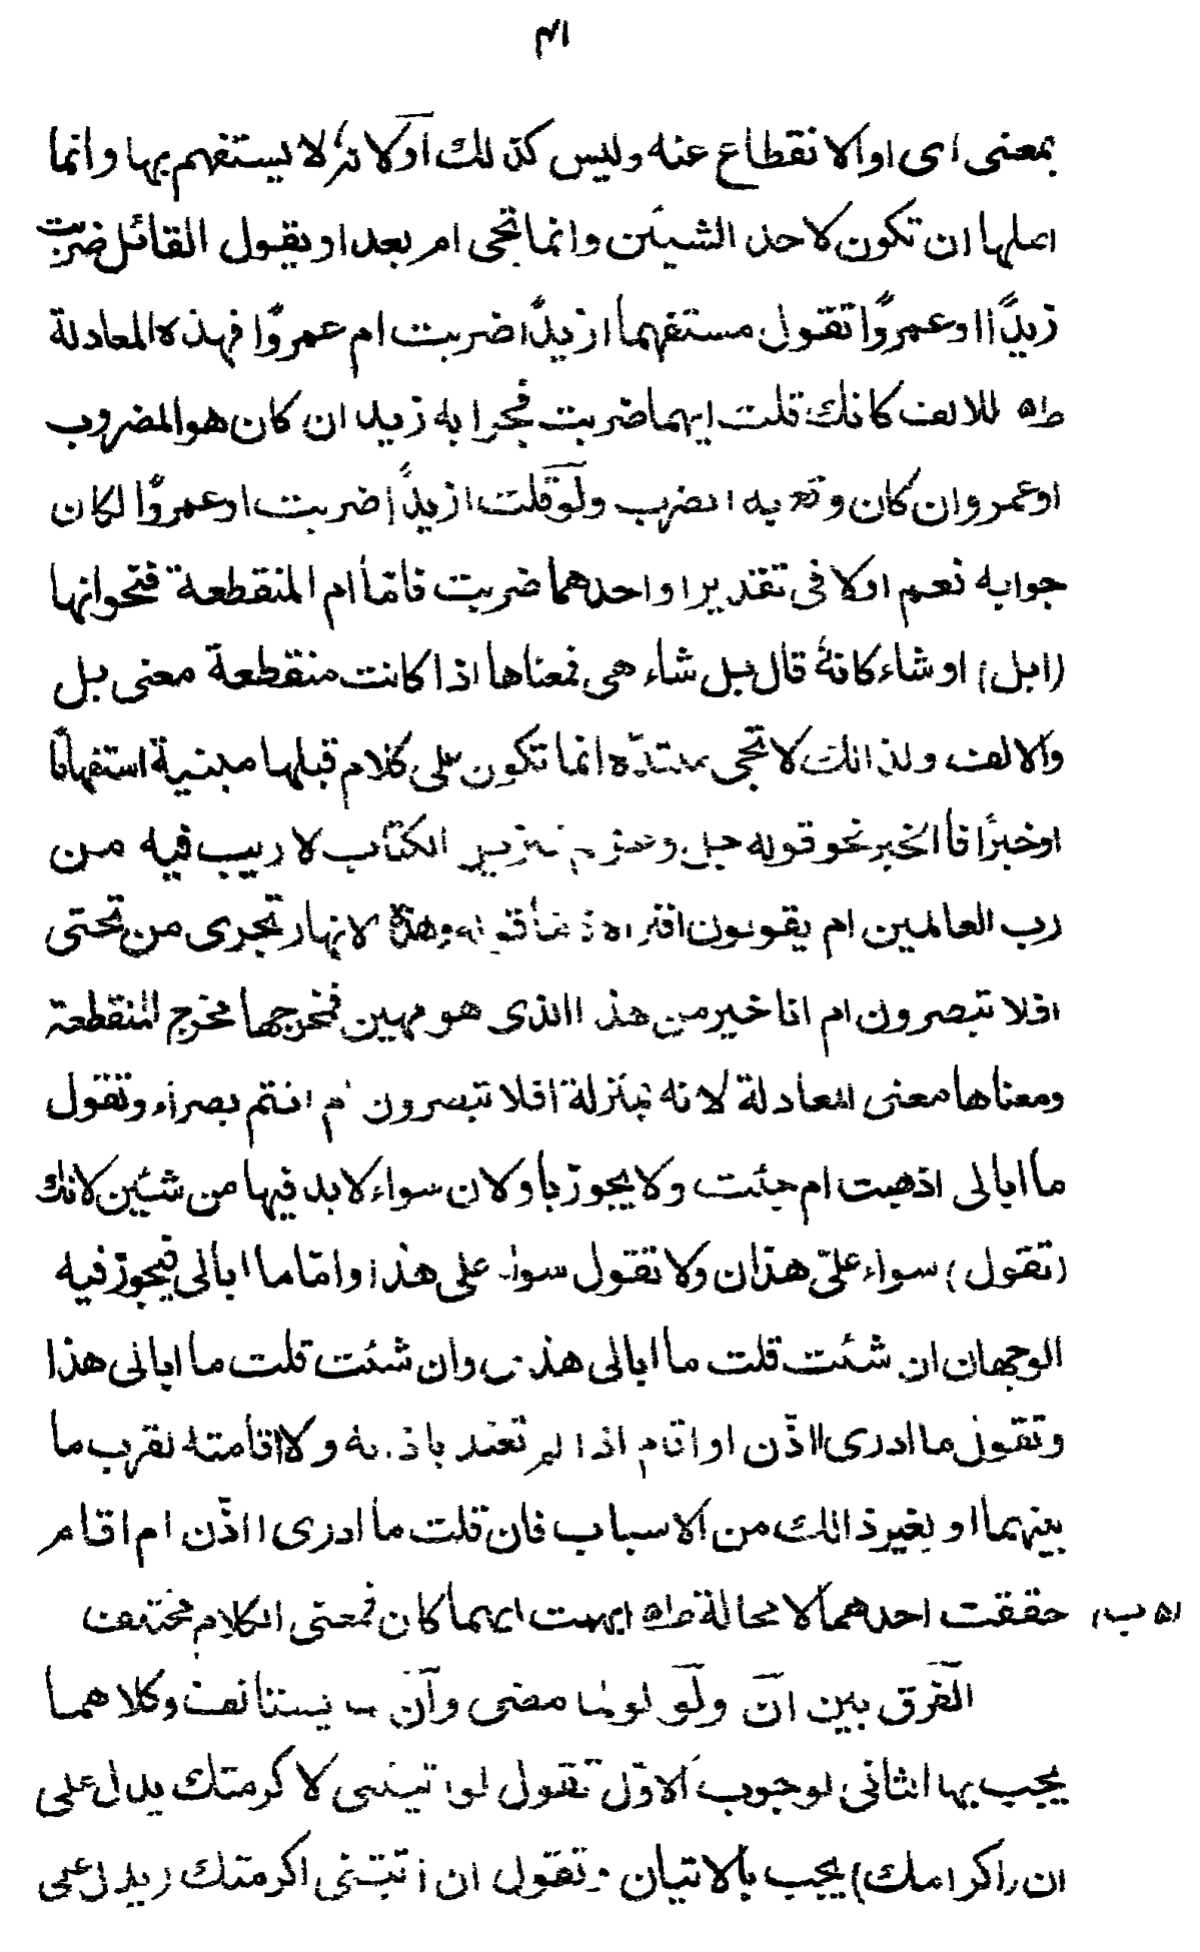 ٣١
بمعنى اى او الانقطاع عنه وليس كذلك او لانه لا يستفهم بها وانما
اصلها ان تكون لاحد الشيئن وانما تجى ام بعد او يقول القائل ضربت
زيدًا او عمروًا تقول مستفهما ازيدًا ضربت ام عمروًا فهذه المعادلة
للالف كانك قلت ايهما ضربت فجوابه زيد ان كان هو المضروب
او عمرو ان كان وقع به الضرب ولو قلت ازيدًا ضربت او عمروًا لكان
جوابه نعم او لا فى تقدير ا واحدهما ضربت فامّا ام المنقطعة فنحو انها
(ابل) او شاء كانهٔ قال بل شاء هى فمعناها اذا كانت منقطعة معنى بل
والالف ولذالك لا تجى مبتدّه انما تكون على كلام قبلها مبنية استفهامًا
او خبرًا فا الخبر نحو قوله جل وعز تنزيل الكتاب لا ريب فيه من
رب العالمين ام يقولون افتراه وهذه لانهار تجرى من تحتى
افلا تبصرون ام انا خير من هذا الذى هو مهين فمخرجها مخرج المنقطعة
ومعناها معنى المعادلة لانه بمنزلة افلا تبصرون ام انتم بصراء وتقول
ما ابالى اذهبت ام جئت ولا يجوز باو لان سواء لابد فيها من شيئن لانك
(تقول) سواء علىّ هذان ولا تقول سواء على هذا وامّا ما ابالى فيجوز فيه
الوجهان ان شئت قلت ما ابالى هذين وان شئت قلت ما ابالى هذا
وتقول ما ادرى ااذّن او اقام اذا لم تعتد باذانه ولا اقامته لقرب ما
بينهما او لغير ذالك من الاسباب فان قلت ما ادرى ااذّن ام اقام
حققت احدهما لا محالة ابهمت ايهما كان فمعنى الكلام مختلف
الفرق بين ان ولو لو لما مضى وان لما يستانف وكلاهما
يجب بها الثانى لوجوب الاوّل تقول لو اتيتنى لاكرمتك يدل على
ان (اكرامك) يجب بالاتيان وتقول ان اتيتنى اكرمتك (يدل على